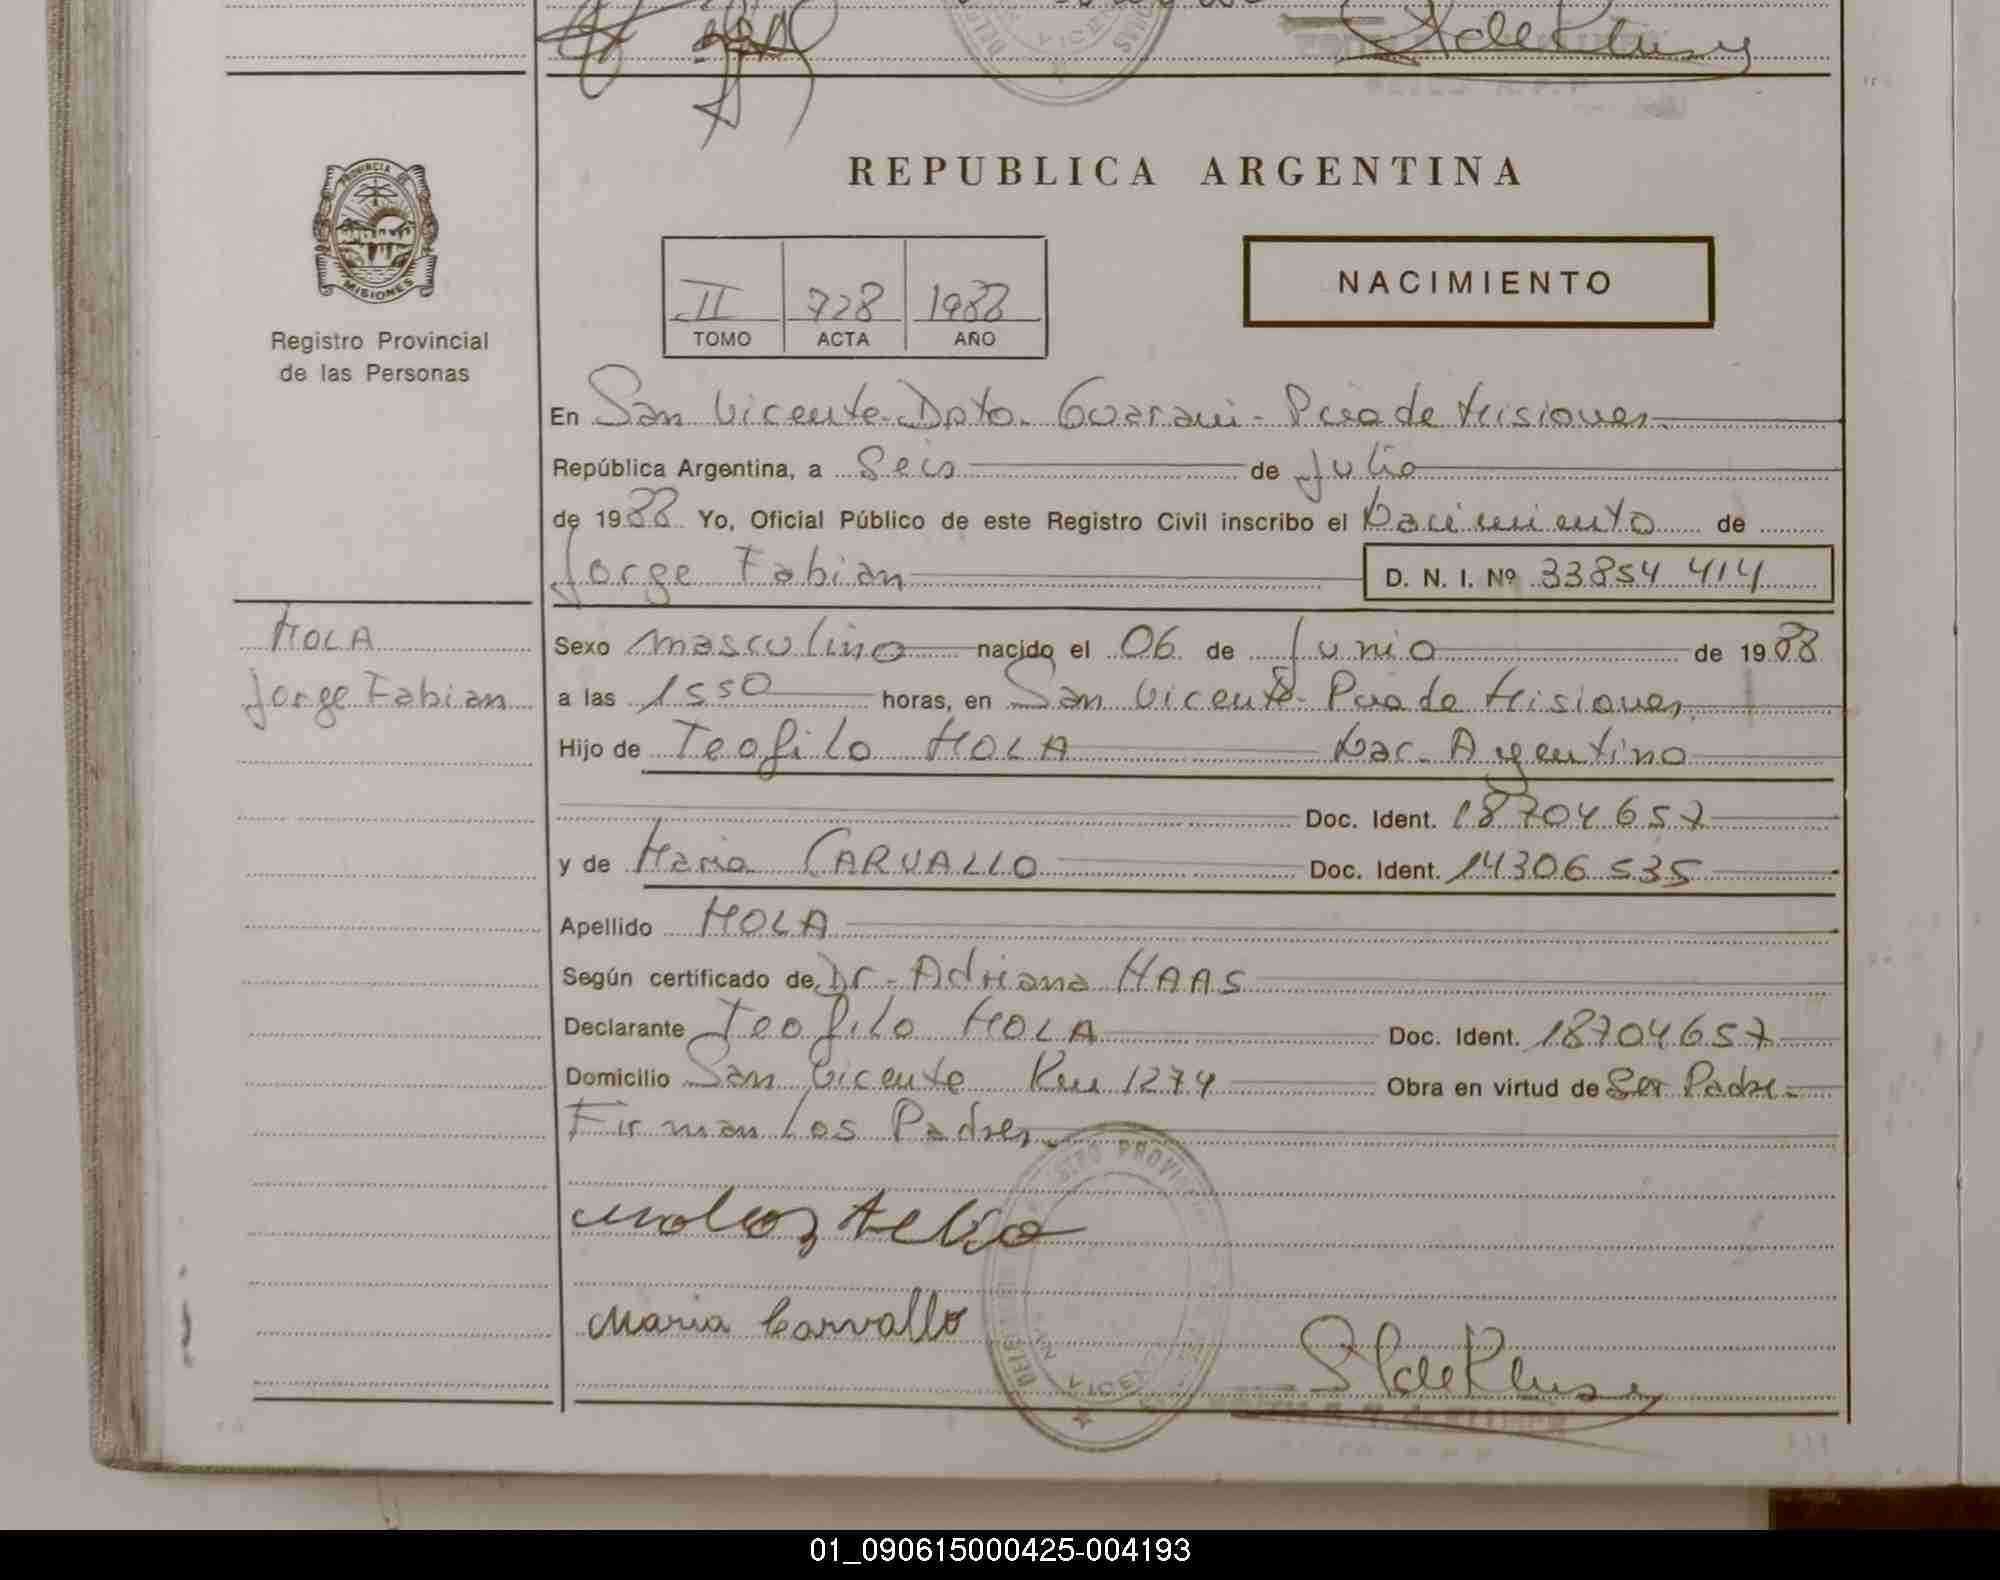 REPUBLICA ARGENTINA
PROVINCIA DE
MISIONES
Registro Provincial
de las Personas
II 728 1988
TOMO ACTA AÑO
NACIMIENTO
En San Vicente Dpto. Guarani - Pcia de Misiones
República Argentina, a Seis de Julio
de 1988 Yo, Oficial Público de este Registro Civil inscribo el Nacimiento de
Jorge Fabian D. N. I. Nº 33854 414
MOLA
Jorge Fabian
Sexo masculino nacido el 06 de Junio de 1988
a las 1550 horas, en San Vicente - Pcia de Misiones
Hijo de Teofilo MOLA Nac. Argentino
Doc. Ident. 18704657
y de Maria CARVALLO Doc. Ident. 14306535
Apellido MOLA
Según certificado de Dr. Adriana HAAS
Declarante Teofilo MOLA Doc. Ident. 18704657
Domicilio San Vicente Km 1274 Obra en virtud de Ser Padre
Firman los Padres
Maria Carvallo
01_090615000425-004193